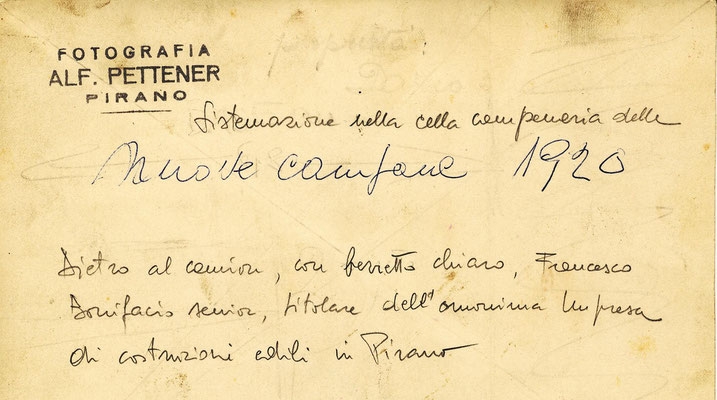 FOTOGRAFIA
ALF. PETTENER
PIRANO
Sistemazione nella cella campanaria delle
Nuove campane 1920
Dietro al camion, con berretto chiaro, Francesco
Bonifacio senior, titolare dell'omonima Impresa
di costruzioni edili in Pirano